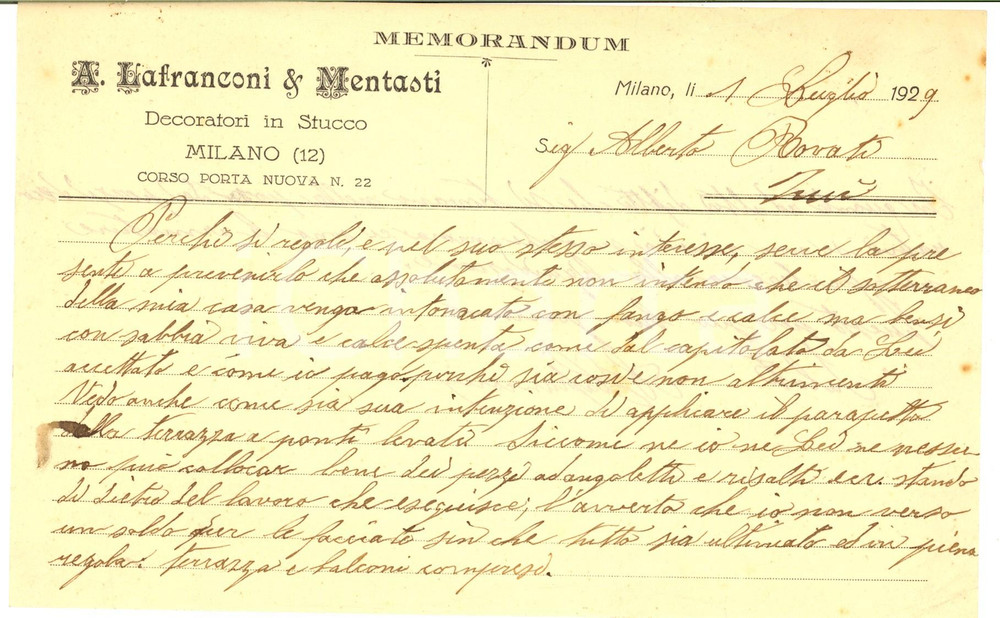 MEMORANDUM
A. Lafranconi & Mentasti
Decoratori in Stucco
MILANO (12)
CORSO PORTA NUOVA N. 22
Milano, li 1 Luglio 1929
Sig Alberto Bovati
Perchè si regoli, e pel suo stesso interesse, serve la pre
sente a prevenirlo che assolutamente non intendo che il sotterraneo
della mia casa venga intonacato con fango e calce ma bensì
con sabbia viva e calce spenta, come dal capitolato da Lei
accettato e come io pago perchè sia così e non altrimenti
Vedo anche come sia sua intenzione di applicare il parapetto
alla terrazza a ponti levati. Siccome ne io ne Lei ne nessu-
no può collocar bene dei pezzi ad angoletti e risalti ecc. stando
di dietro del lavoro che eseguisce; l'avverto che io non verso
un soldo per le facciate sin che tutto sia ultimato ed in piena
regola: terrazza e balconi compresi.